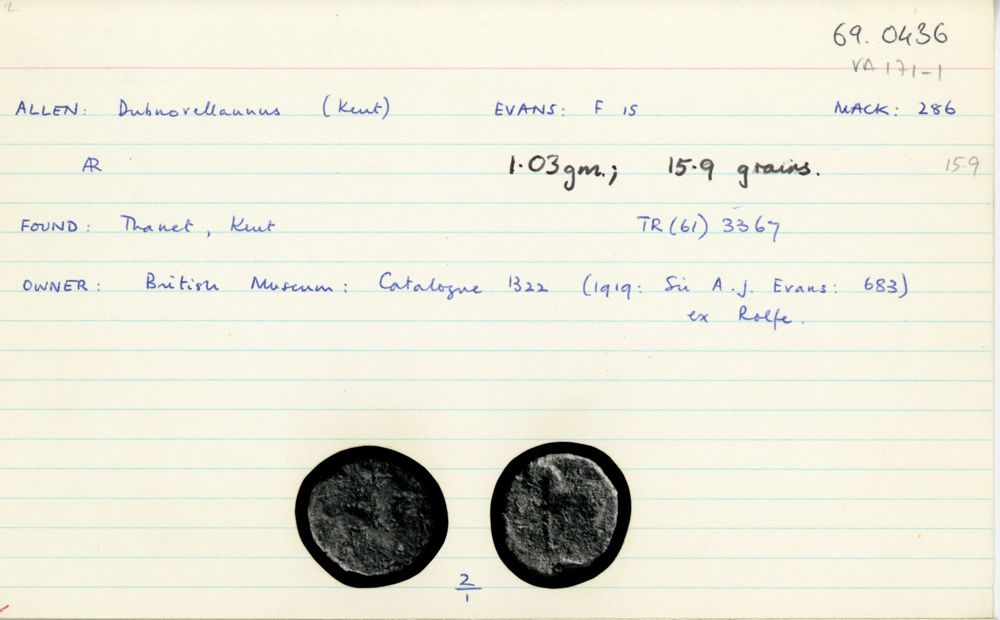 2
69. 0436
VA 171-1
ALLEN: Dubnovellaunus (Kent) EVANS: F 15 MACK: 286
AR 1.03gm.; 15.9 grains. 15.9
FOUND: Thanet, Kent TR (61) 3367
OWNER: British Museum: Catalogue 1322 (1919: Sir A.J. Evans: 683)
ex Rolfe.
2
1